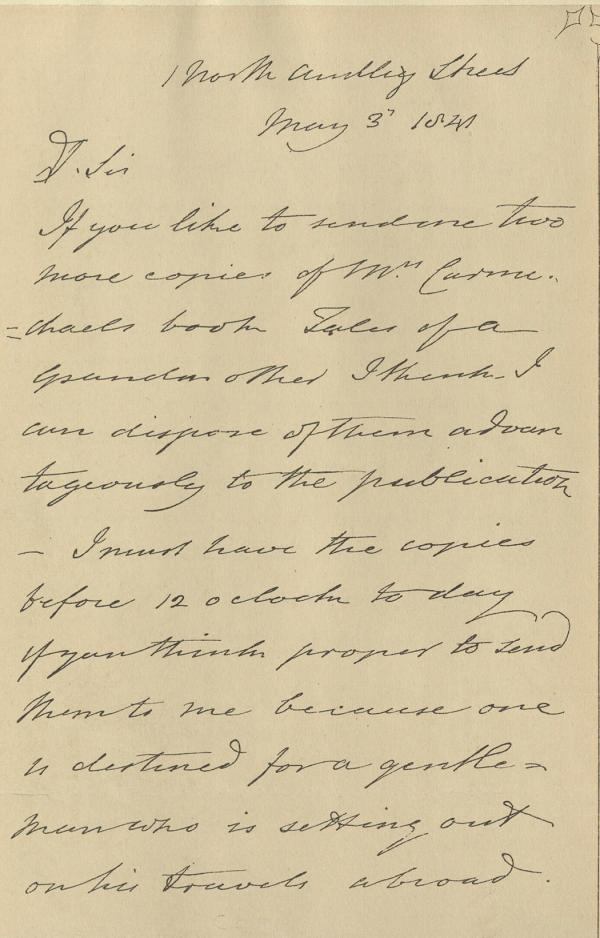 1 North Audley Street
May 3d 1841
Dr. Sir
If you like to send me two
more copies of Mrs. Carmi-
=chaels book Tales of a
Grandmother I think I
can dispose of them advan
tageously to the publication
— I must have the copies
before 12 oclock to day
if you think proper to send
them to me because one
is destined for a gentle=
man who is setting out
on his travels abroad.